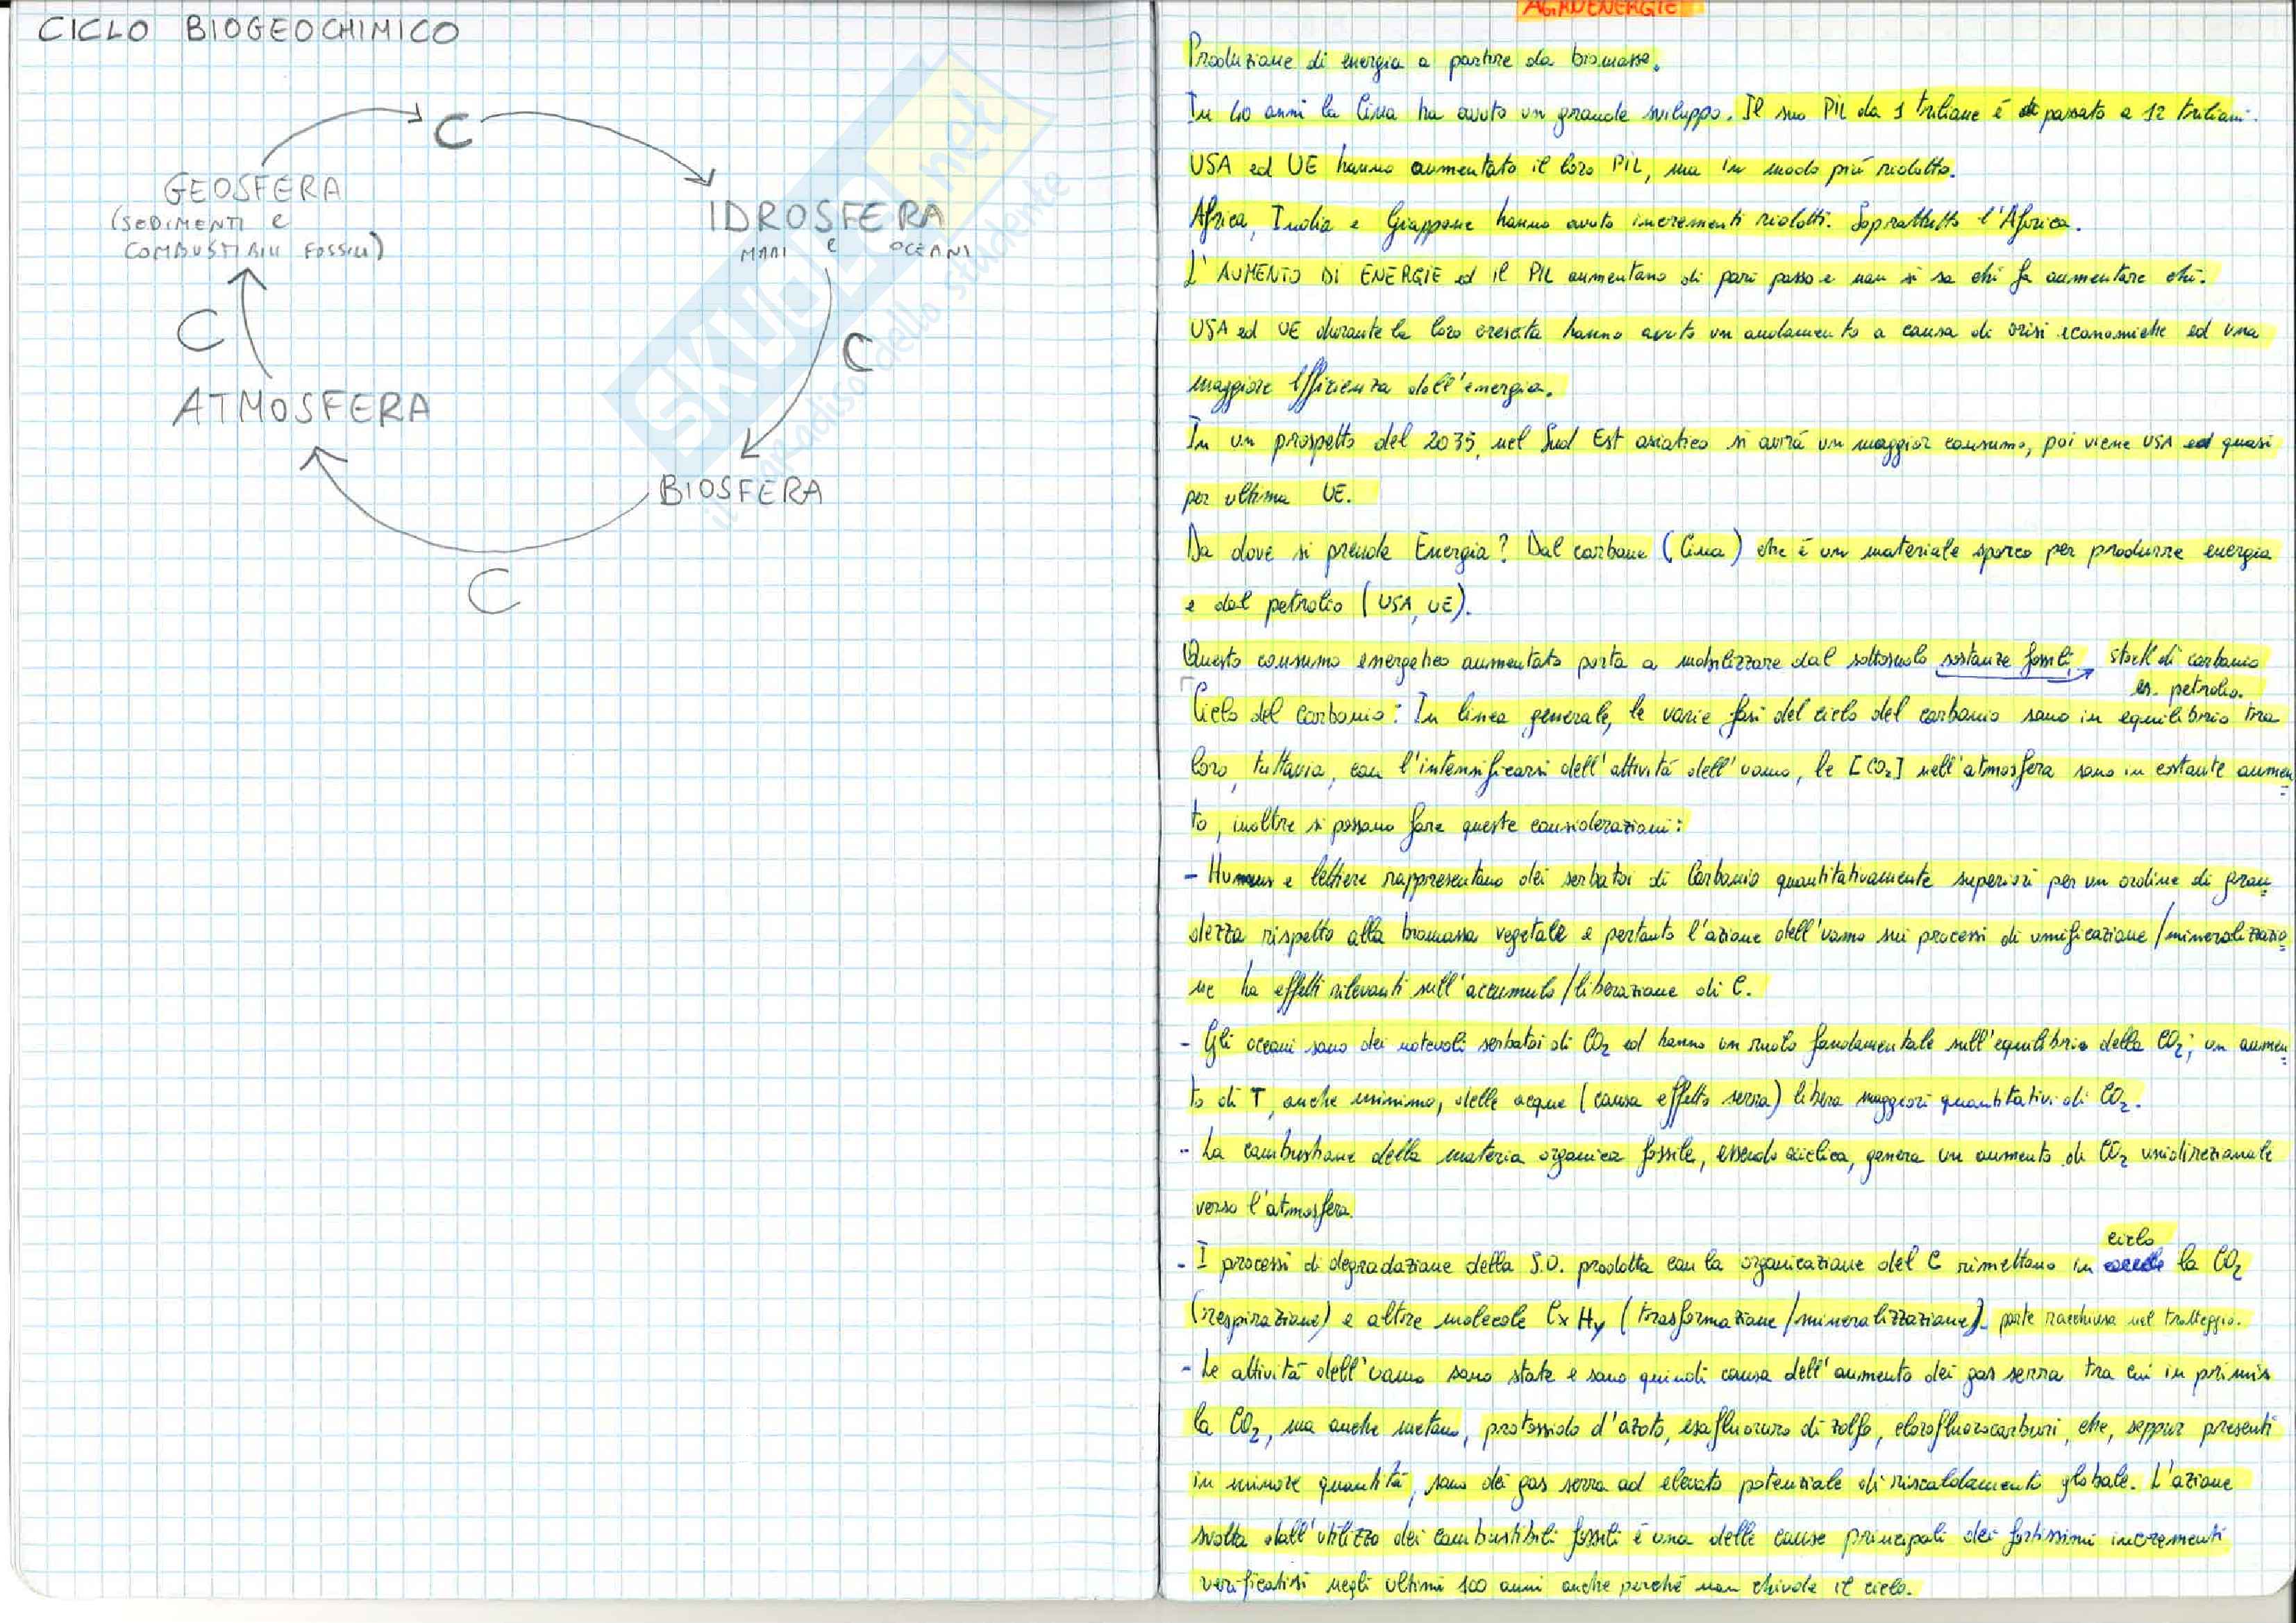 CICLO BIOGEOCHIMICO
C
GEOSFERA
(SEDIMENTI E
COMBUSTIBILI FOSSILI)
IDROSFERA
MARI E OCEANI
C
C
ATMOSFERA
BIOSFERA
C
SKUOLA.net
il paradiso dello studente
AGROENERGIE
Produzione di energia a partire da biomasse.
In 40 anni la Cina ha avuto un grande sviluppo. Il suo PIL da 1 triliane è passato a 12 triliani.
USA ed UE hanno aumentato il loro PIL, ma in modo più ridotto.
Africa, India e Giappone hanno avuto incrementi ridotti. Soprattutto l'Africa.
L'AUMENTO DI ENERGIE ed il PIL aumentano di pari passo e non si sa chi fa aumentare chi.
USA ed UE durante la loro crescita hanno avuto un andamento a causa di crisi economiche ed una
maggiore efficienza dell'energia.
In un prospetto del 2035, nel Sud Est asiatico si avrà un maggior consumo, poi viene USA ed quasi
per ultima UE.
Da dove si prende Energia? Dal carbone (Cina) che è un materiale sporco per produrre energia
e dal petrolio (USA, UE).
Questo consumo energetico aumentato porta a mobilizzare dal sottosuolo sostanze fossili → stock di carbonio
es. petrolio.
Ciclo del carbonio: In linea generale, le varie fasi del ciclo del carbonio sono in equilibrio tra
loro, tuttavia, con l'intensificarsi dell'attività dell'uomo, le [CO₂] nell'atmosfera sono in costante aumen
to, inoltre si possono fare queste considerazioni:
- Humus e lettiere rappresentano dei serbatoi di Carbonio quantitativamente superiori per un ordine di gran
dezza rispetto alla biomassa vegetale e pertanto l'azione dell'uomo sui processi di umificazione/mineralizzazio
ne ha effetti rilevanti sull'accumulo/liberazione di C.
- Gli oceani sono dei notevoli serbatoi di CO₂ ed hanno un ruolo fondamentale sull'equilibrio della CO₂; un aumen
to di T, anche minimo, delle acque (causa effetto serra) libera maggiori quantitativi di CO₂.
- La combustione della materia organica fossile, essendo aciclica, genera un aumento di CO₂ unidirezionale
verso l'atmosfera.
- I processi di degradazione della S.O. prodotta con la organicazione del C rimettono in ciclo la CO₂
(respirazione) e altre molecole CxHy (trasformazione/mineralizzazione). parte racchiusa nel tratteggio.
- Le attività dell'uomo sono state e sono quindi causa dell'aumento dei gas serra tra cui in primis
la CO₂, ma anche metano, protossido d'azoto, esafluoruro di zolfo, clorofluorocarburi, che, seppur presenti
in minore quantità, sono dei gas serra ad elevato potenziale di riscaldamento globale. L'azione
svolta dall'utilizzo dei combustibili fossili è una delle cause principali dei fortissimi incrementi
verificatisi negli ultimi 100 anni anche perché non chiude il ciclo.